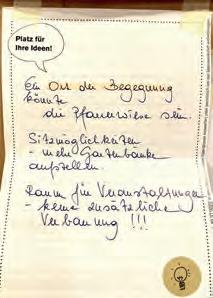 Platz für
Ihre Ideen!
Ein Ort der Begegnung
könnte
die Pfarrwiese sein.
Sitzmöglichkeiten
- mehr Gartenbänke
aufstellen.
Raum für Veranstaltungen
- keine zusätzliche
Verbauung !!!